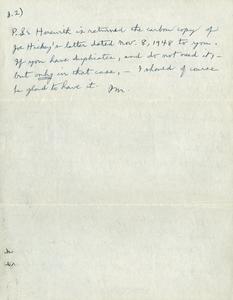 p.2)
P.S. Herewith is returned the carbon copy of
Joe Hickey's letter dated Nov. 8, 1948 to you.
If you have duplicates, and do not need it, -
but only in that case, - I should of course
be glad to have it. JM.